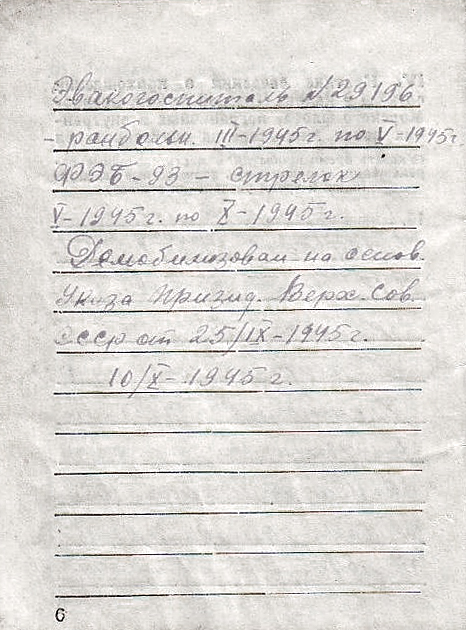 Эвакогоспиталь №29196
- ранболн. III-1945г. по V-1945г.
ФЭБ-93 - стрелок
V-1945г. по X-1945г.
Демобилизован на основ.
Указа Призид. Верх. Сов.
СССР от 25/IX-1945г.
10/X-1945г.
6